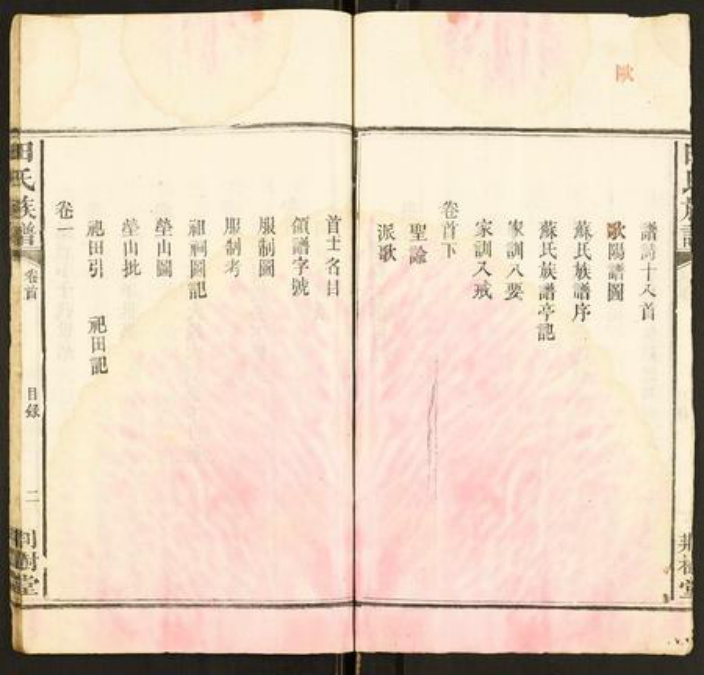 歐
譜詩十八首
歐陽譜圖
蘇氏族譜序
蘇氏族譜亭記
家訓八要
家訓八戒
卷首下
聖諭
派歌
首士名目
領譜字號
服制圖
服制考
祖祠圖記
塋山圖
塋山批
祀田引 祀田記
卷一
田氏族譜
卷首
目錄
二
荆樹堂